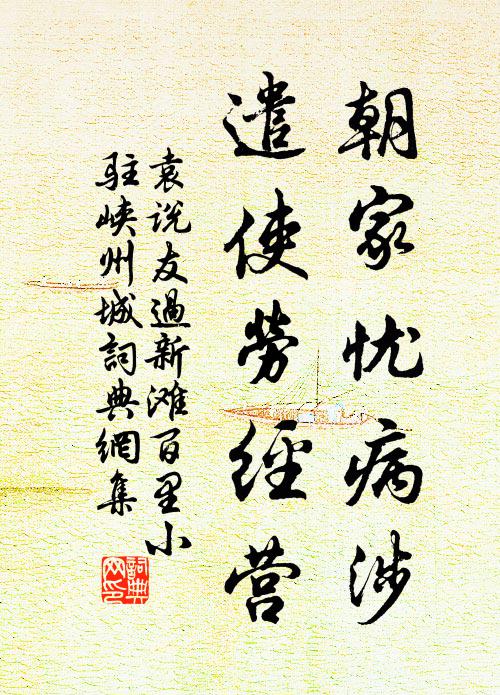 朝家忧病涉
遣使劳经营
袁说友過新滩百里小
驻峡州城詞典網集
詞典网印